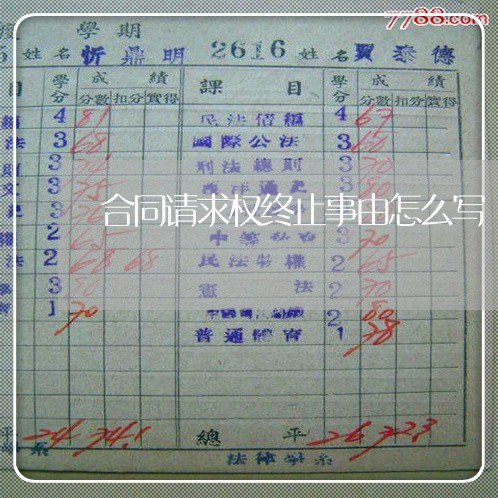 7788.com
學期
姓名 忻鼎明 2616 姓名 賈泰德
目 學分 成績 課目 學分 成績
分數 扣分 實得 分數 扣分 實得
4 81 民法債編 4 67
法 3 68 國際公法 3 60
3 刑法總則 3 70
文 3 75 西洋通史 3 80
合同请求权终止事由怎么写
2 65 中等 3 70
法 2 68 68 民法物權 2 65
3 80 憲法 2 70
1 70 2 80
普通體育 1 78
平 24 74.1 總平 26 72.3
系 法律學系